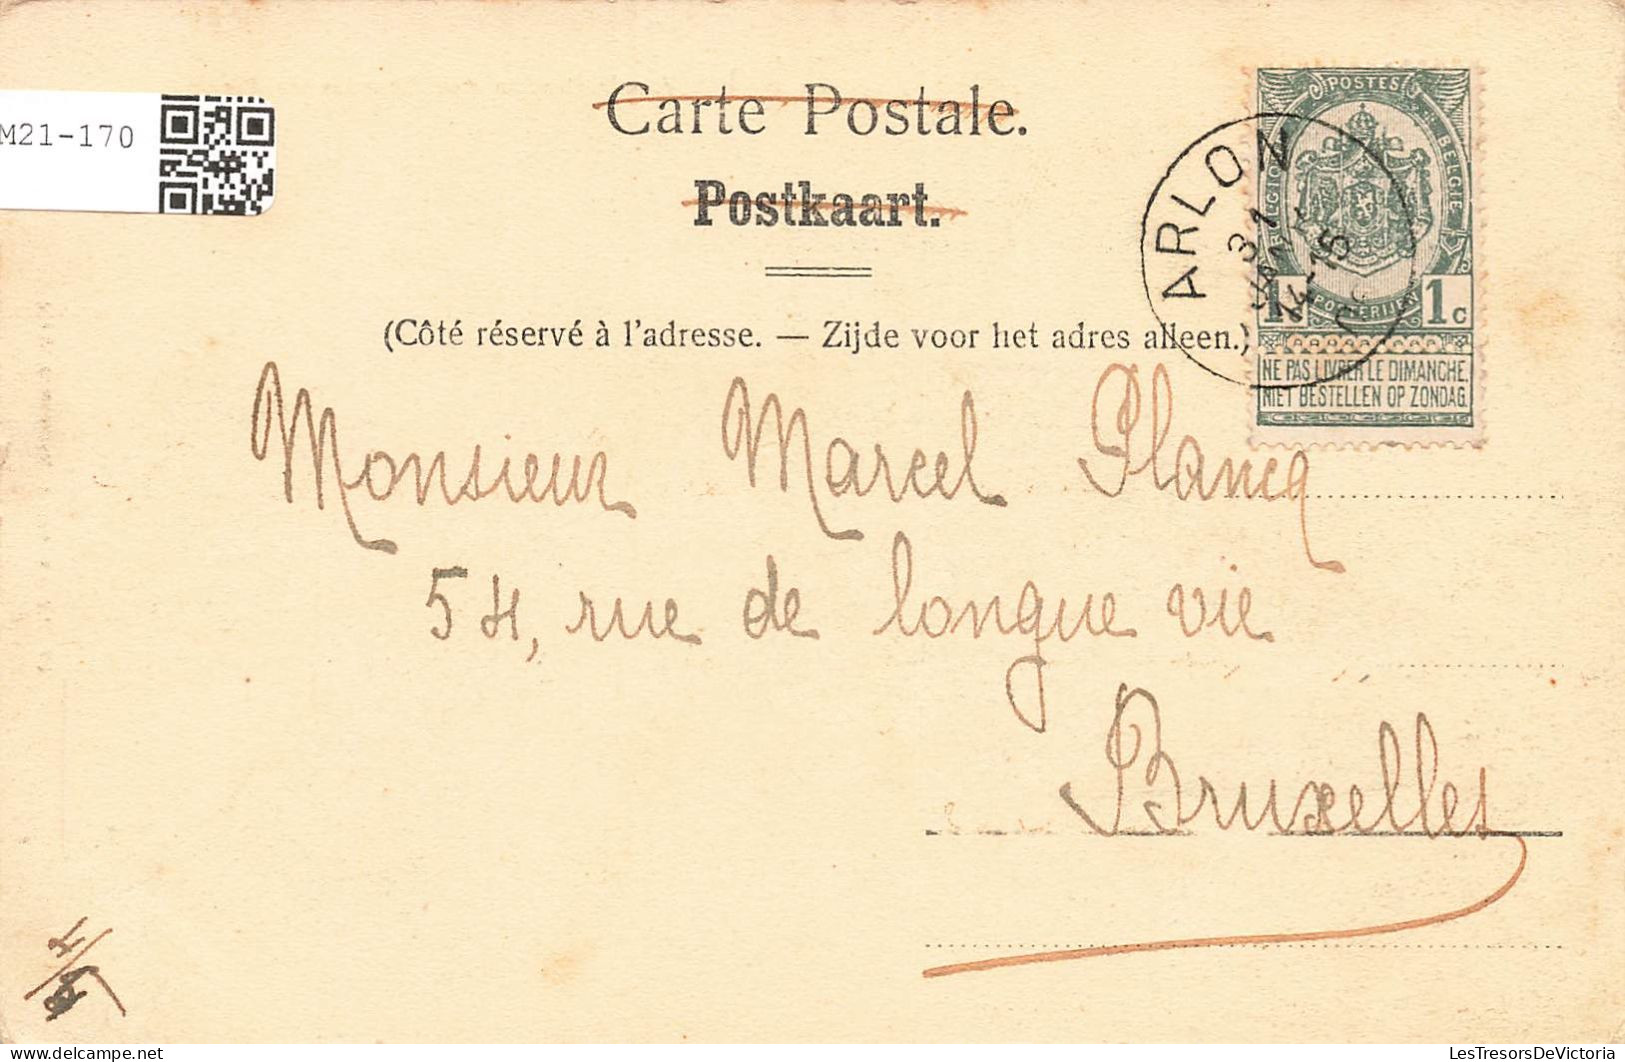 M21-170
Carte Postale.
Postkaart.
(Côté réservé à l'adresse. — Zijde voor het adres alleen.)
POSTES
BELGIE
POSTERIJEN
1c
NE PAS LIVRER LE DIMANCHE.
NIET BESTELLEN OP ZONDAG.
ARLON
31
14-15
Monsieur Marcel Plancq
54, rue de longue vie
Bruxelles
Delcampe.net
LesTresorsDeVictoria